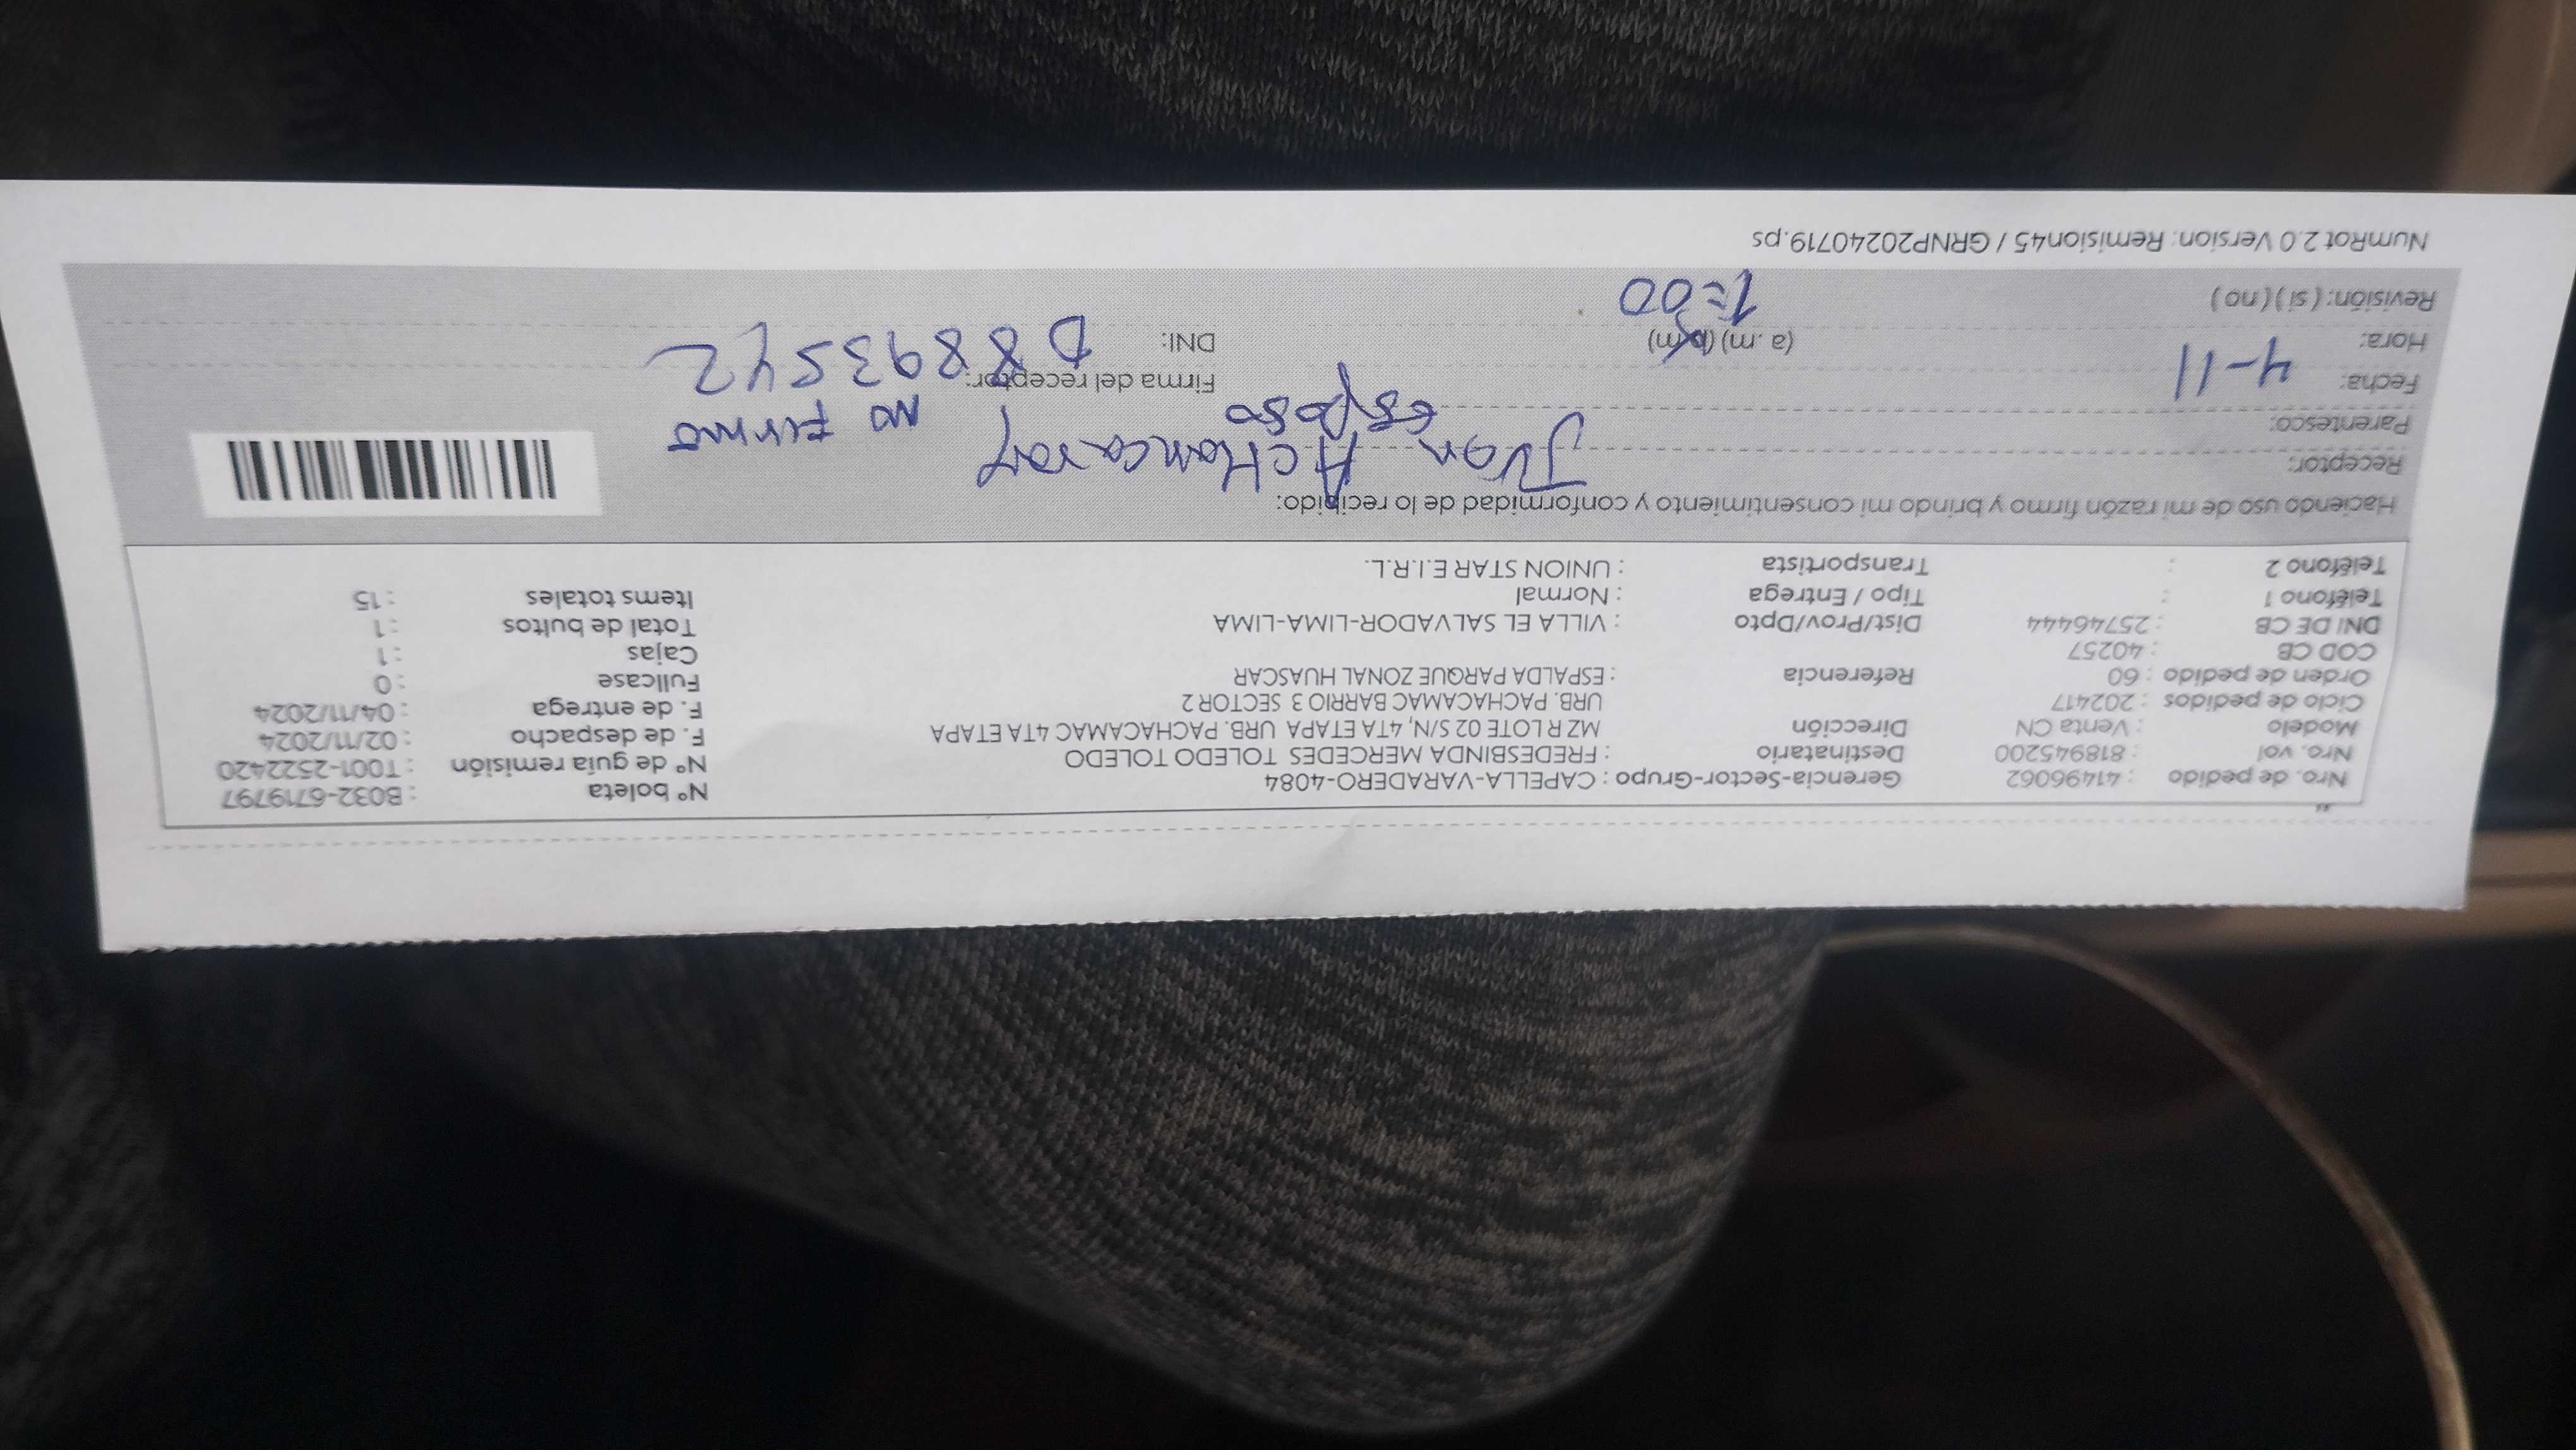 Nro. de pedido : 41496062 Gerencia-Sector-Grupo : CAPELLA-VARADERO-4084 N° boleta : B032-6719797
Nro. vol : 818945200 Destinatario : FREDESBINDA MERCEDES TOLEDO TOLEDO N° de guía remisión : T001-2522420
Modelo : Venta CN Dirección MZ R LOTE 02 S/N, 4TA ETAPA URB. PACHACAMAC 4TA ETAPA F. de despacho : 02/11/2024
Ciclo de pedidos : 202417 URB. PACHACAMAC BARRIO 3 SECTOR 2 F. de entrega : 04/11/2024
Orden de pedido : 60 Referencia : ESPALDA PARQUE ZONAL HUASCAR Fullcase : 0
COD CB : 40257 Cajas : 1
DNI DE CB : 25746444 Dist/Prov/Dpto : VILLA EL SALVADOR-LIMA-LIMA Total de bultos : 1
Teléfono 1 : Tipo / Entrega : Normal Items totales : 15
Teléfono 2 : Transportista : UNION STAR E.I.R.L.
Haciendo uso de mi razón firmo y brindo mi consentimiento y conformidad de lo recibido:
Receptor: Juan Achancaray
Parentesco: esposo no firmo
Fecha: 4-11 Firma del receptor:
Hora: (a.m) (p.m) 1=00 DNI: 08893542
Revisión: ( si ) ( no )
NumRot 2.0 Version: Remision45 / GRNP20240719.ps